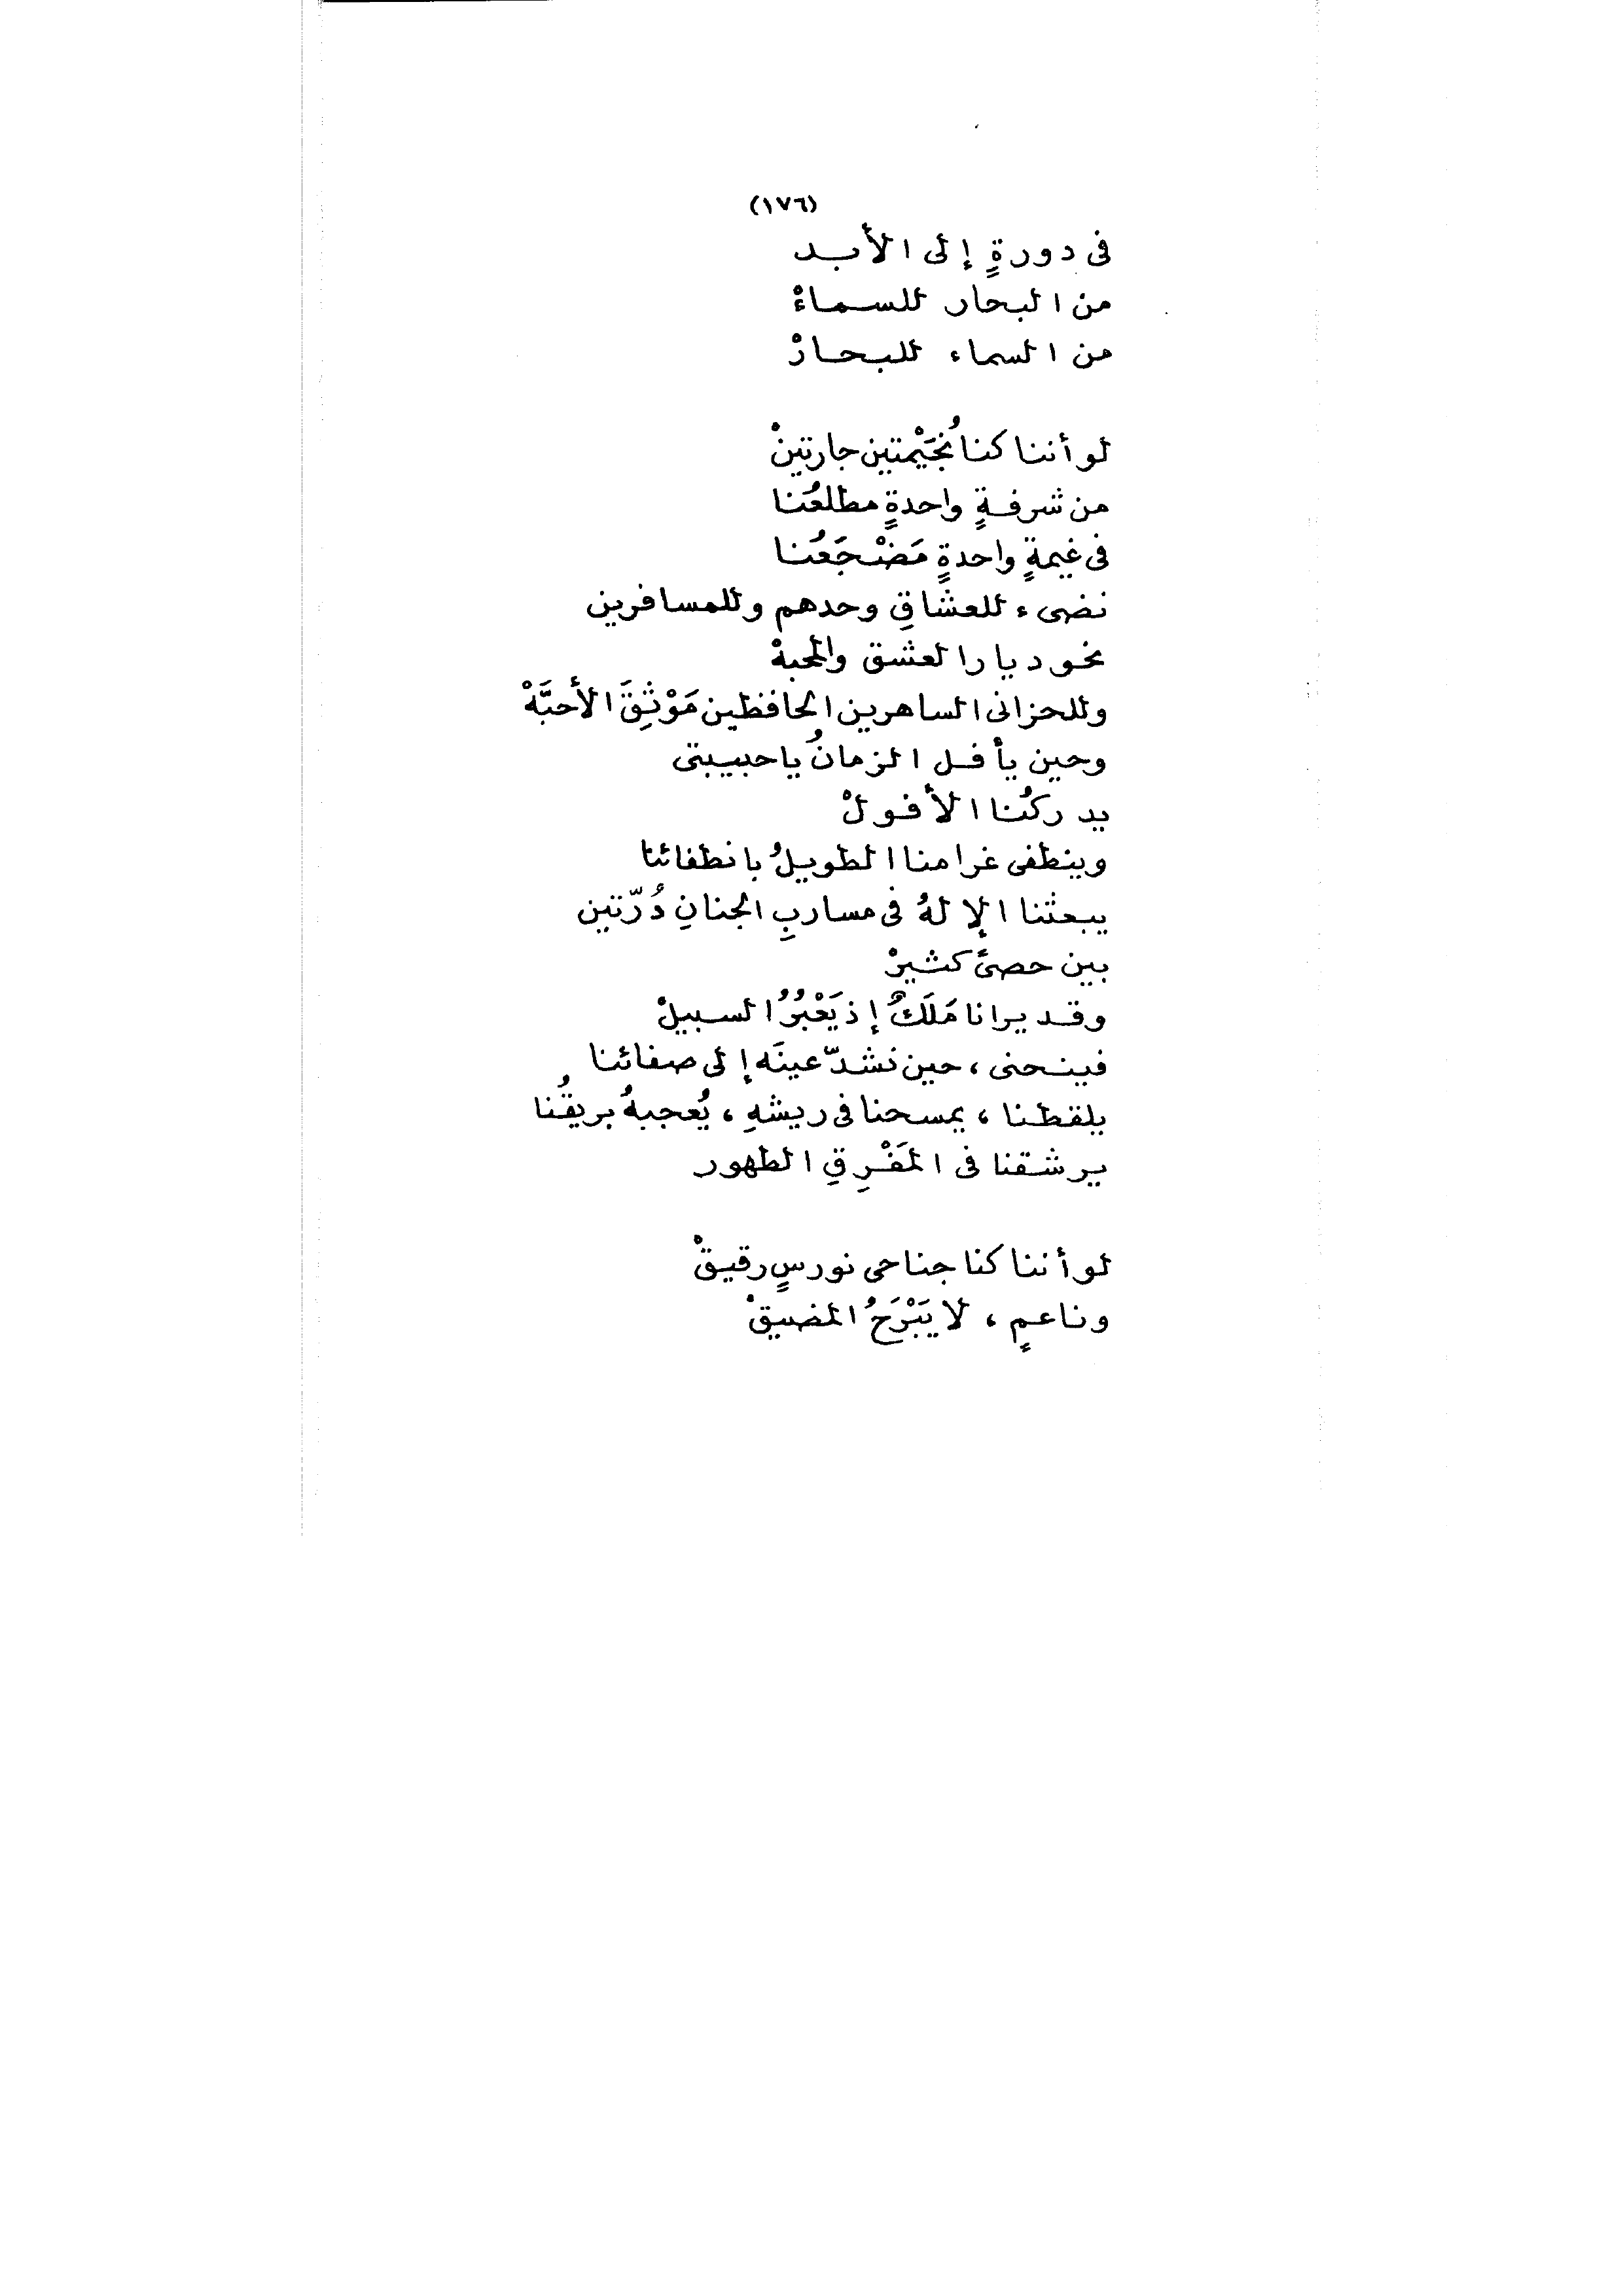 (١٧٦)
فى دورةٍ إلى الأبد
من البحار للسماءْ
من السماء للبحارْ
لو أننا كنا نُجَيْمتين جارتينْ
من شرفةٍ واحدةٍ مطلعُنا
فى غيمةٍ واحدةٍ مَضْجَعُنا
نضىء للعشاقِ وحدهم وللمسافرين
نحو ديار العشق والمحبهْ
وللحزانى الساهرين الحافظين مَوْثِقَ الأحبَّهْ
وحين يأفل الزمانُ ياحبيبتى
يدركُنا الأفولْ
وينطفى غرامنا الطويلُ بانطفائنا
يبعثنا الإلهُ فى مساربِ الجنانِ دُرّتين
بين حصىً كثيرْ
وقد يرانا مَلَكٌ إذ يَعْبُرُ السبيلْ
فينحنى، حين نشدّ عينَه إلى صفائنا
يلقطنا، يمسحنا فى ريشهِ، يُعجبهُ بريقُنا
يرشقنا فى المَفْرِقِ الطهور
لو أننا كنا جناحى نورسٍ رقيقْ
وناعمٍ، لا يَبْرَحُ المضيقْ